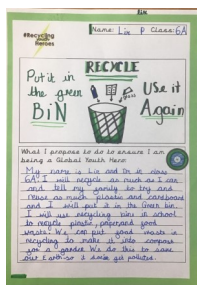 #Recycling
Heroes
Name: Lia P Class: 6A
RECYCLE
Put it in
the green
BiN
Use it
Again
What I propose to do to ensure I am
being a Global Youth Hero:
My name is Lia and I'm in class
6A. I will recycle as much as I can
and tell my family to try and
reuse as much plastic and cardboard
and I will put it in the Green bin.
I will use recycling bins in school
to recycle plastic, paper and food
waste. We can put food waste in
recycling to make it into compost
for a garden. We do this to save
our Earth or it will get polluted.